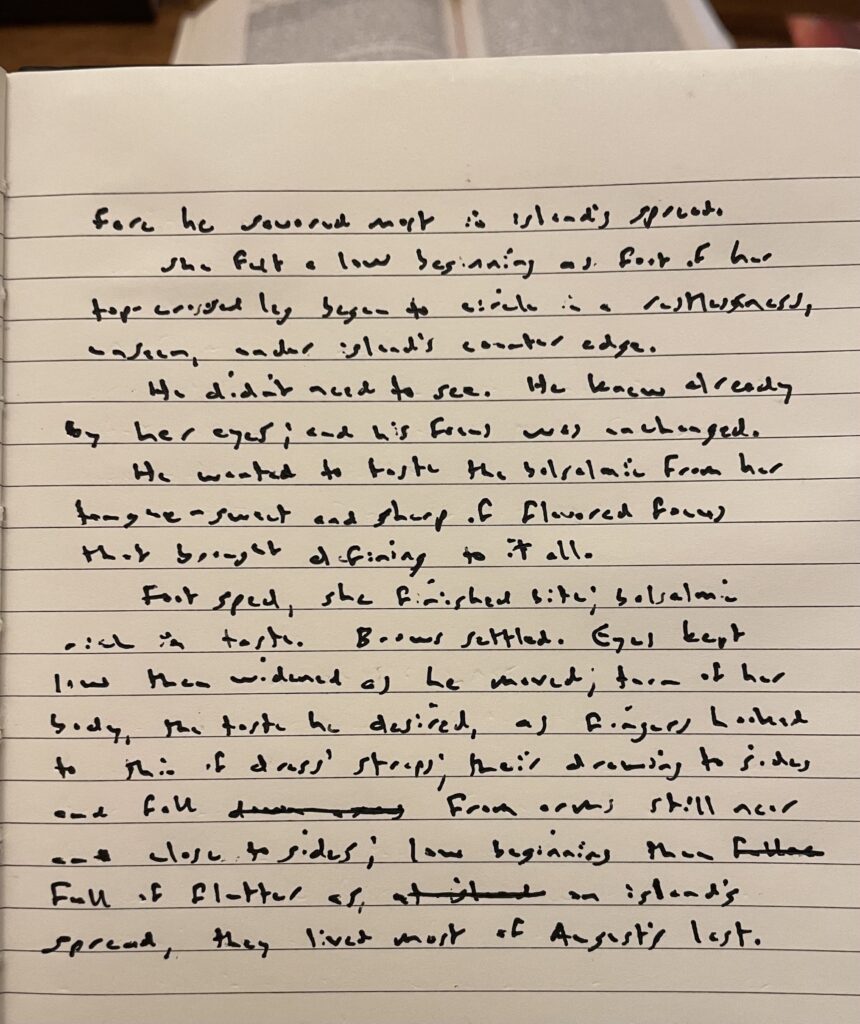 Fare he savored most in island's spread.
She felt a low beginning as foot of her
top-crossed leg began to circle in a restlessness,
unseen, under island's counter edge.
He didn't need to see. He knew already
by her eyes; and his focus was unchanged.
He wanted to taste the balsalmic from her
tongue - sweet and sharp of flavored focus
that brought defining to it all.
Foot sped, she finished bite; balsalmic
rich in taste. Brows settled. Eyes kept
low then widened as he moved; turn of her
body, the taste he desired, as fingers hooked
to thin of dress' straps; their drawing to sides
and fall from arms still near
and close to sides; low beginning then
full of flutter as, on island's
spread, they lived most of August's last.